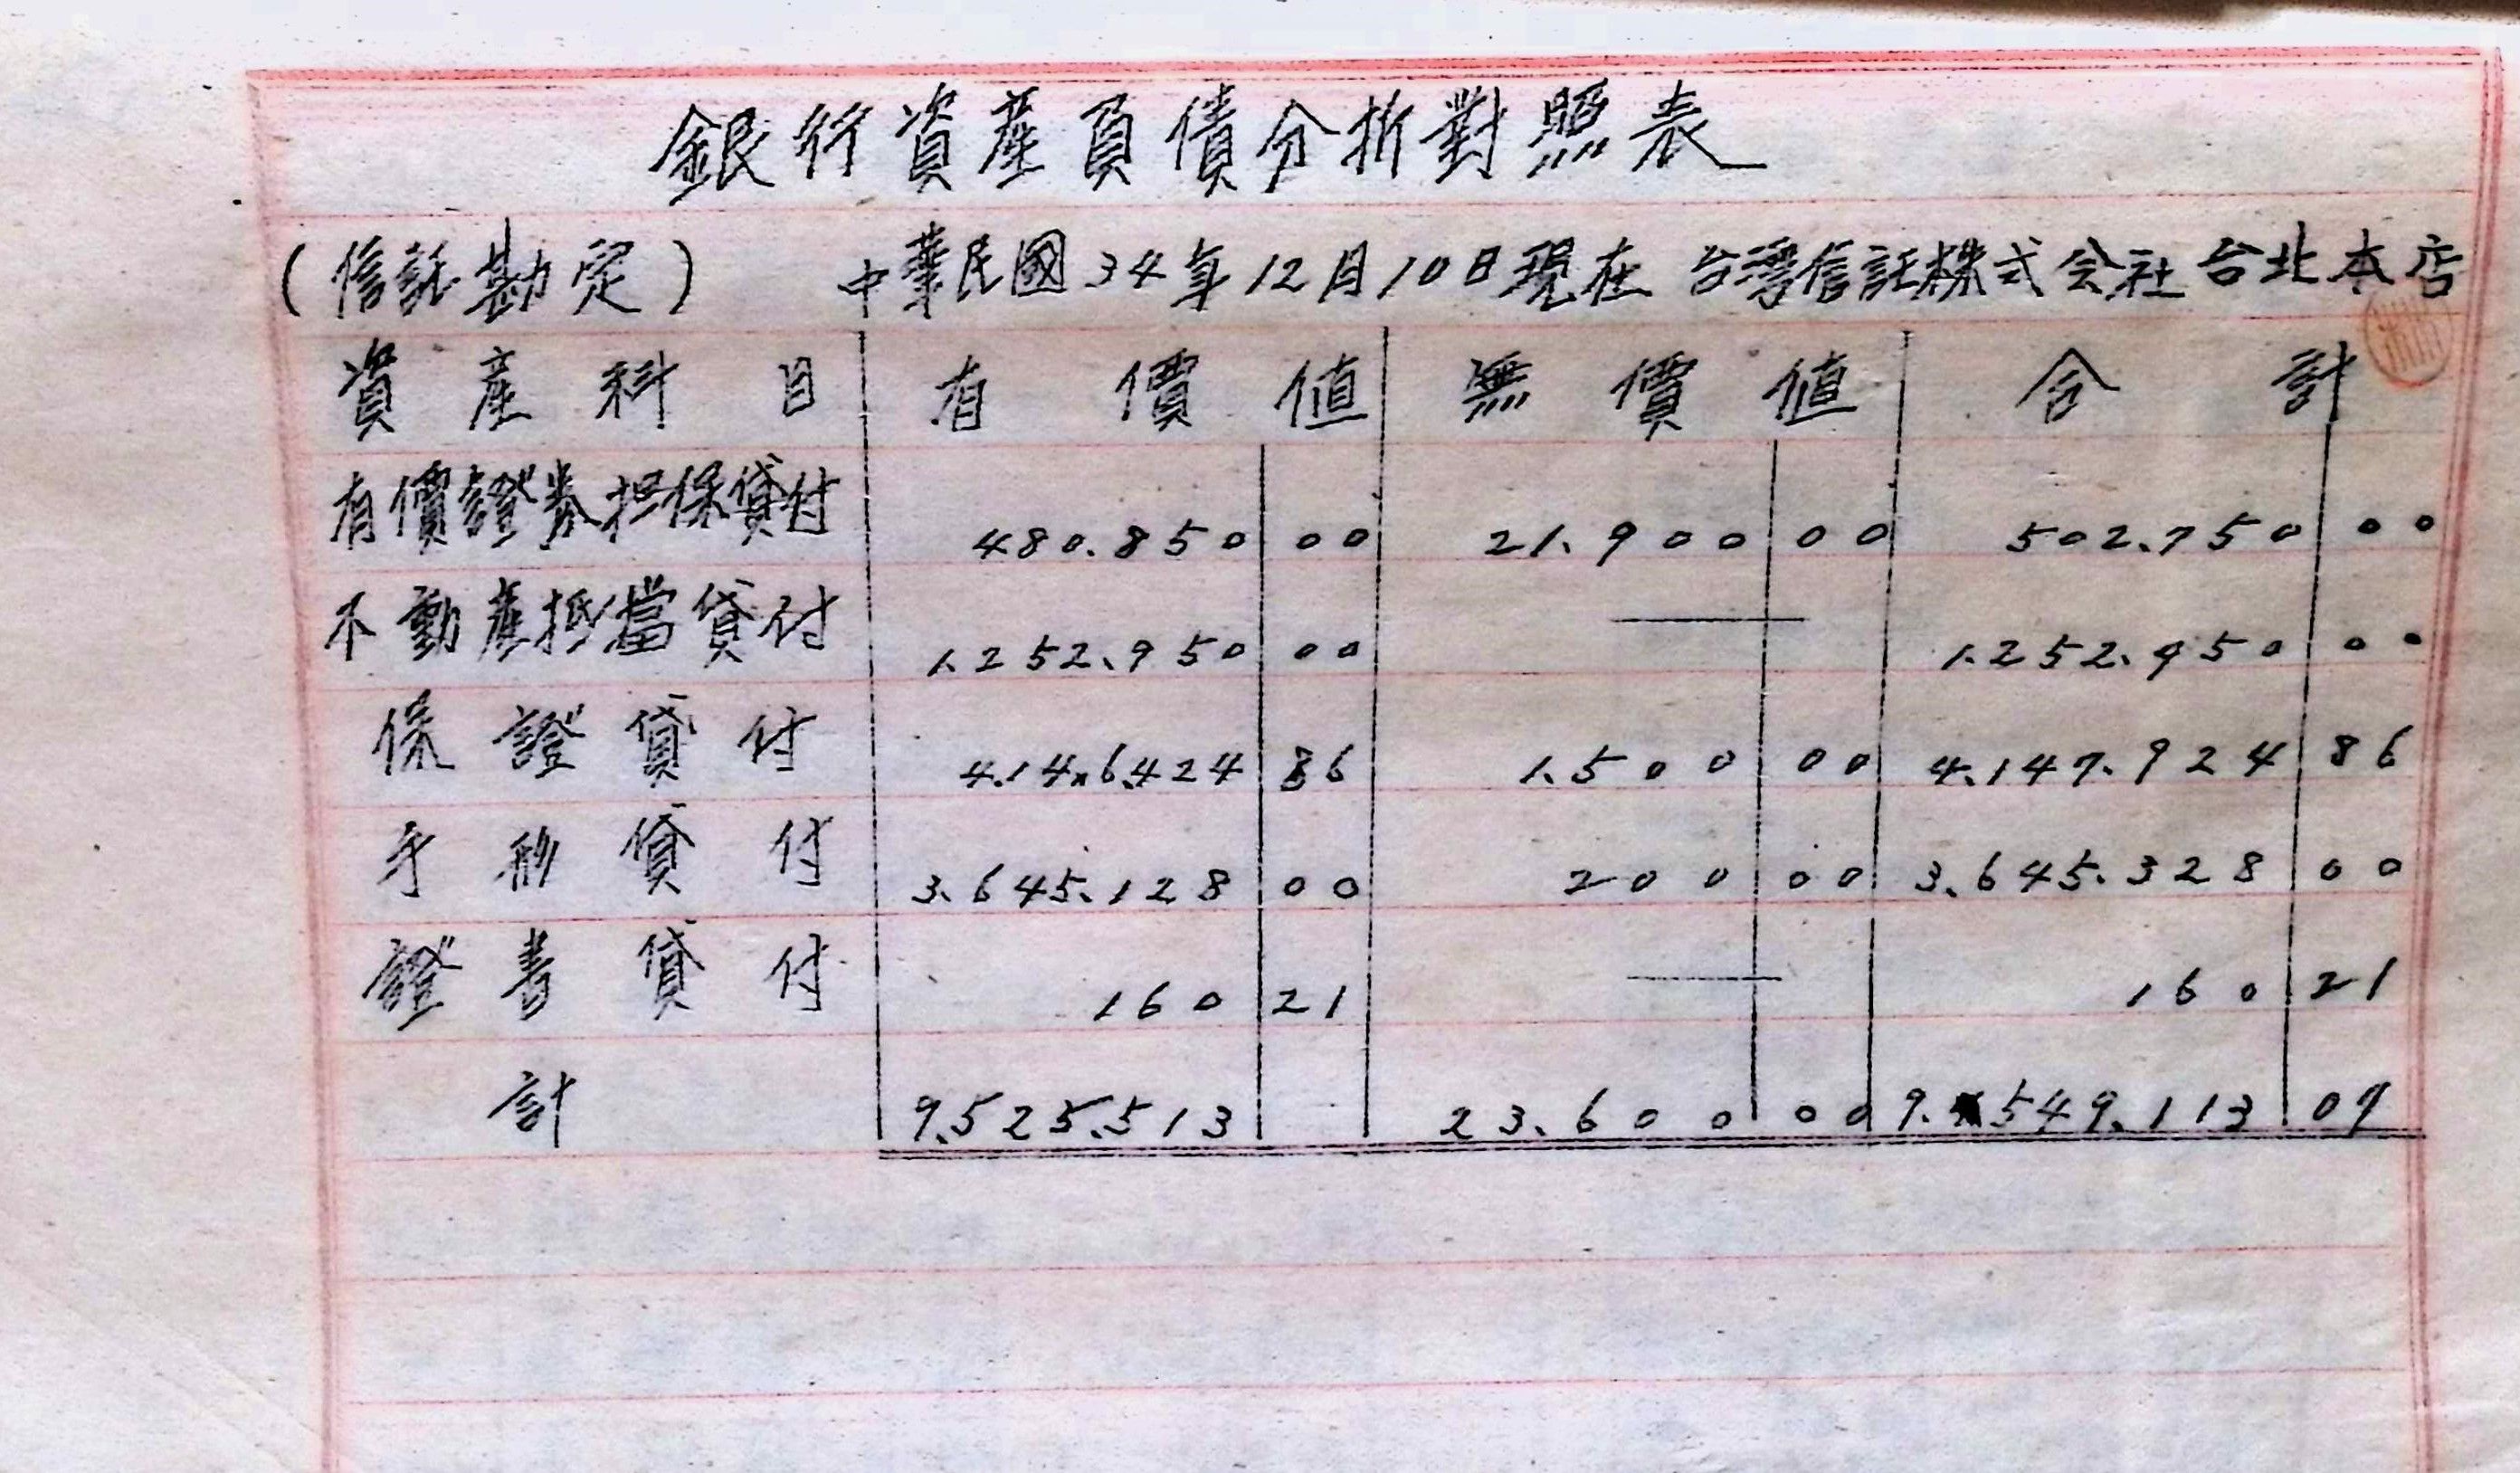 銀行資產負債分析對照表
(信託勘定) 中華民國34年12月10日現在 台灣信託株式会社台北本店
資產科目 有價值 無價值 合計
有價證券担保貸付 480.850 00 21.900 00 502.750 00
不動產抵當貸付 1.252.950 00 — 1.252.950 00
保證貸付 4.146.424 86 1.500 00 4.147.924 86
手形貸付 3.645.128 00 200 00 3.645.328 00
證書貸付 160 21 — 160 21
計 9.525.513 23.600 00 9.549.113 09